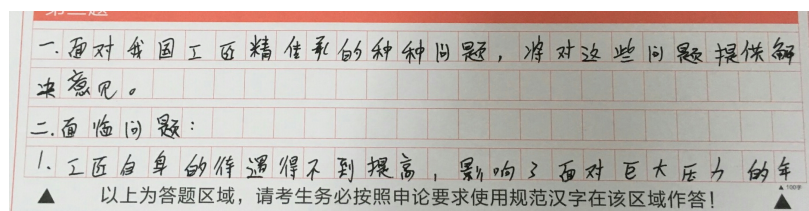 一.面对我国工匠精传承的种种问题，将对这些问题提供解
决意见。
二.面临问题：
1.工匠自身的待遇得不到提高，影响了面对巨大压力的年
▲ 100字
▲ 以上为答题区域，请考生务必按照申论要求使用规范汉字在该区域作答！ ▲